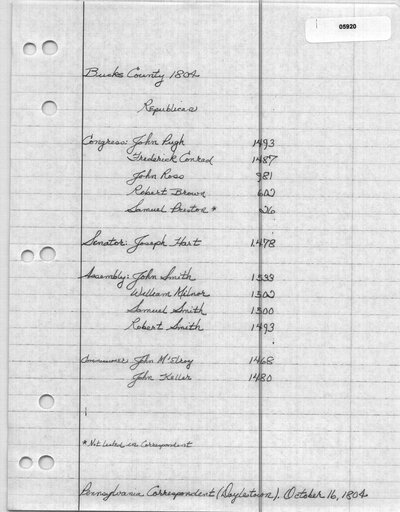 05920
Bucks County 1804
Republican
Congress: John Pugh 1493
Frederick Conrad 1487
John Ross 981
Robert Brown 602
Samuel Preston * 26
Senator: Joseph Hart 1478
Assembly: John Smith 1533
William Milnor 1502
Samuel Smith 1500
Robert Smith 1493
Commissioner: John McElroy 1468
John Keller 1480
* Not listed in Correspondent
Pennsylvania Correspondent (Doylestown). October 16, 1804